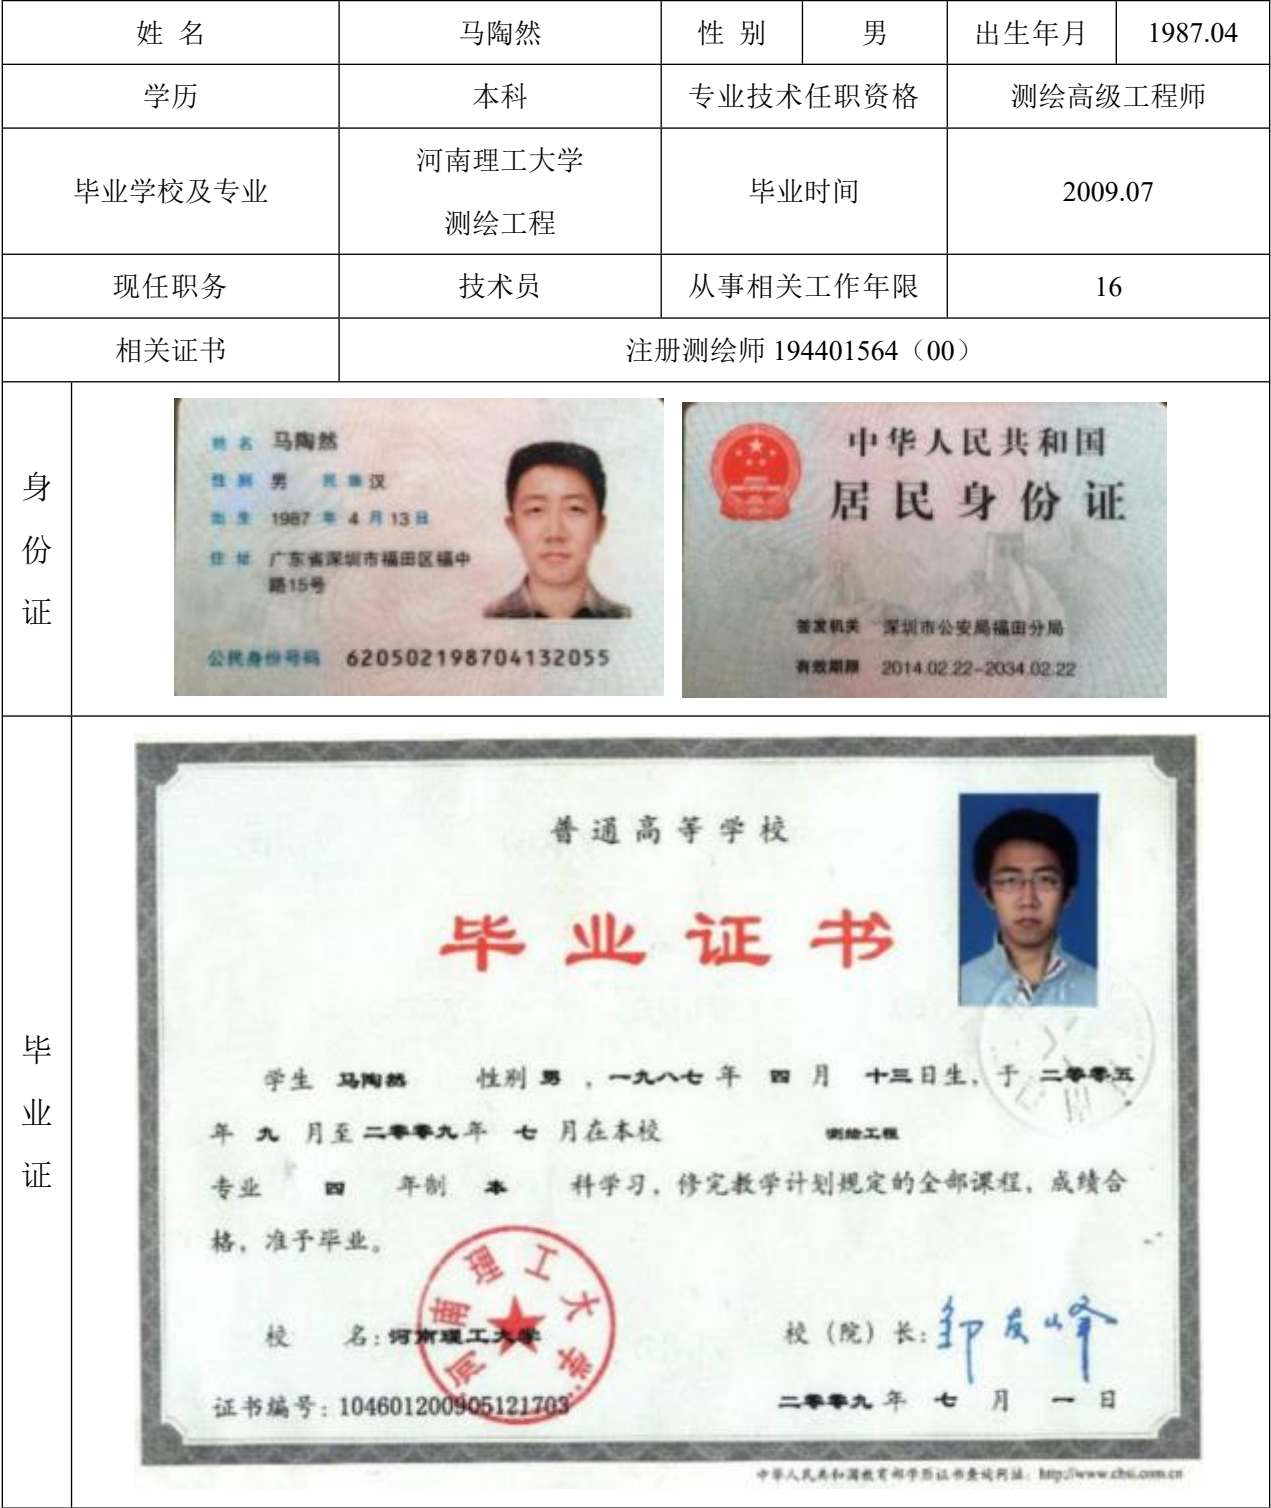 姓 名 马陶然 性 别 男 出生年月 1987.04
学历 本科 专业技术任职资格 测绘高级工程师
毕业学校及专业 河南理工大学 测绘工程 毕业时间 2009.07
现任职务 技术员 从事相关工作年限 16
相关证书 注册测绘师 194401564（00）
身份证
姓名 马陶然
性别 男 民族 汉
出生 1987 年 4 月 13 日
住址 广东省深圳市福田区福中
路15号
公民身份号码 620502198704132055
中华人民共和国
居民身份证
签发机关 深圳市公安局福田分局
有效期限 2014.02.22-2034.02.22
毕业证
普通高等学校
毕业证书
学生 马陶然 性别 男 ，一九八七 年 四 月 十三日生，于 二零零五
年 九 月至 二零零九年 七 月在本校 测绘工程
专业 四 年制 本 科学习，修完教学计划规定的全部课程，成绩合
格，准予毕业。
河南理工大学
校 名：河南理工大学 校（院）长：邹友峰
证书编号：104601200905121703 二零零九 年 七 月 一 日
中华人民共和国教育部学历证书查询网址：http://www.chsi.com.cn